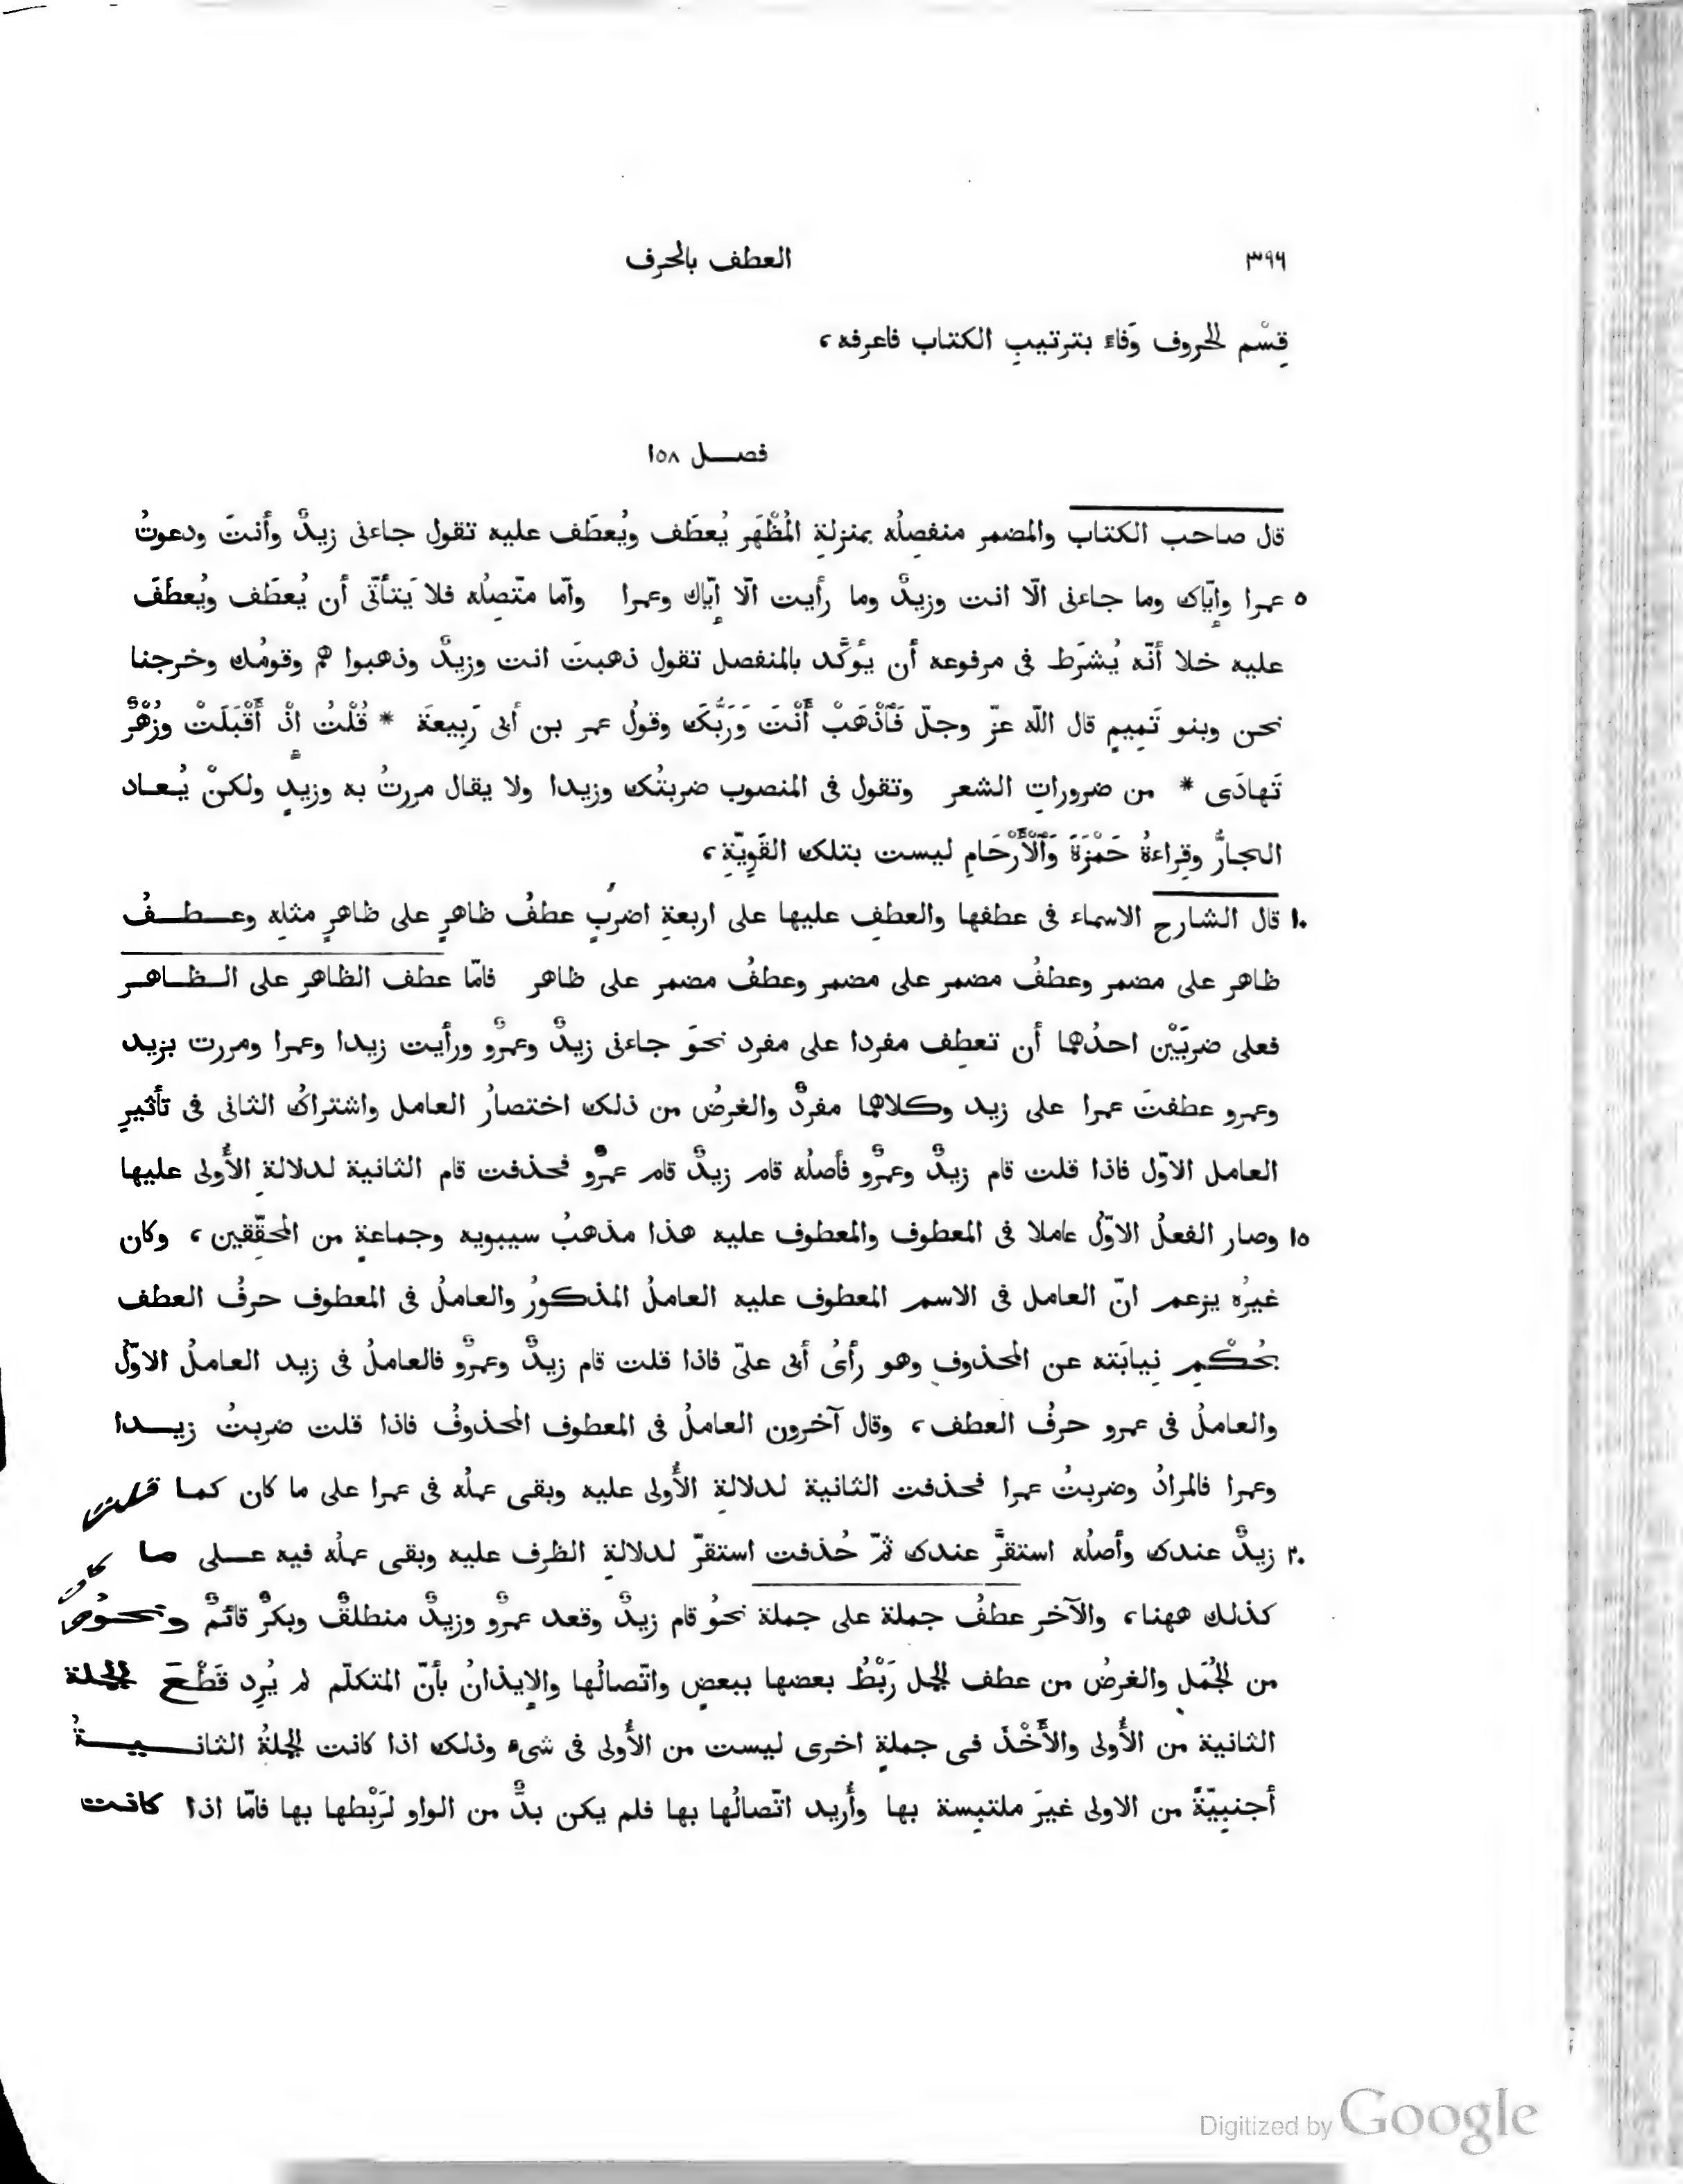 ٣٩٦ العطف بالحرف
قِسْم الحروف وَفاءً بترتيبِ الكتاب فاعرفه،
فصل ١٥٨
قال صاحب الكتاب والمضمر منفصِلُه بمنزلةِ المُظْهَرِ يُعطَف ويُعطَف عليه تقول جاءنى زيدٌ وأنتَ ودعوتُ
٥ عمرا وإيّاك وما جاءنى الّا انت وزيدٌ وما رأيت الّا إيّاك وعمرا وأمّا متّصِلُه فلا يَتأتّى أن يُعطَف ويُعطَفَ
عليه خلا أنّه يُشرَط فى مرفوعه أن يؤكَّد بالمنفصل تقول ذهبتَ انت وزيدٌ وذهبوا هم وقومُك وخرجنا
نحن وبنو تَمِيمٍ قال اللّه عزّ وجلّ فَٱذْهَبْ أَنْتَ وَرَبُّكَ وقولُ عمر بن أبى رَبِيعَةَ * قُلْتُ إذْ أَقْبَلَتْ وزُهْرٌ
تَهادَى * من ضروراتِ الشعر وتقول فى المنصوب ضربتُك وزيدا ولا يقال مررتُ به وزيدٍ ولكنْ يُعاد
الجارُّ وقِراءةُ حَمْزَةَ وَٱلْأَرْحَامِ ليست بتلك القَوِيّةِ،
١٠ قال الشارح الاسماء فى عطفها والعطفِ عليها على اربعةِ اضربٍ عطفُ ظاهرٍ على ظاهرٍ مثلِه وعطفُ
ظاهر على مضمر وعطفُ مضمر على مضمر وعطفُ مضمر على ظاهر فامّا عطف الظاهر على الظاهر
فعلى ضربَيْن احدُهما أن تعطِف مفردا على مفرد نحوَ جاءنى زيدٌ وعمرٌو ورأيت زيدا وعمرا ومررت بزيد
وعمرو عطفتَ عمرا على زيد وكلاهما مفردٌ والغرضُ من ذلك اختصارُ العامل واشتراكُ الثانى فى تأثيرِ
العامل الاوّل فاذا قلت قام زيدٌ وعمرٌو فأصلُه قام زيدٌ قام عمرٌو فحذفت قام الثانية لدلالةِ الأُولى عليها
١٥ وصار الفعلُ الاوّلُ عاملا فى المعطوف والمعطوف عليه هذا مذهبُ سيبويه وجماعةٍ من المحقّقين، وكان
غيرُه يزعم انّ العامل فى الاسم المعطوف عليه العاملُ المذكورُ والعاملُ فى المعطوف حرفُ العطف
بحُكْمِ نِيابَته عن المحذوف وهو رأىُ أبى علىّ فاذا قلت قام زيدٌ وعمرٌو فالعاملُ فى زيد العاملُ الاوّلُ
والعاملُ فى عمرو حرفُ العطف، وقال آخرون العاملُ فى المعطوف المحذوفُ فاذا قلت ضربتُ زيدا
وعمرا فالمرادُ وضربتُ عمرا فحذفت الثانية لدلالةِ الأُولى عليه وبقى عملُه فى عمرا على ما كان كما قلت
٢٠ زيدٌ عندك وأصلُه استقرَّ عندك ثمّ حُذفت استقرّ لدلالةِ الظرف عليه وبقى عملُه فيه على ما كان
كذلك ههنا، والآخر عطفُ جملة على جملة نحوُ قام زيدٌ وقعد عمرٌو وزيدٌ منطلقٌ وبكرٌ قائمٌ ونحوُها
من الجُمَل والغرضُ من عطف الجمل رَبْطُ بعضها ببعضٍ واتّصالُها والإيذانُ بأنّ المتكلّم لم يُرِد قَطْعَ الجملة
الثانية من الأُولى والأَخْذَ فى جملةٍ اخرى ليست من الأُولى فى شىء وذلك اذا كانت الجملةُ الثانيةُ
أجنبِيّةً من الاولى غيرَ ملتبِسة بها وأُريد اتّصالُها بها فلم يكن بدٌّ من الواو لرَبْطها بها فامّا اذا كانت
Digitized by Google